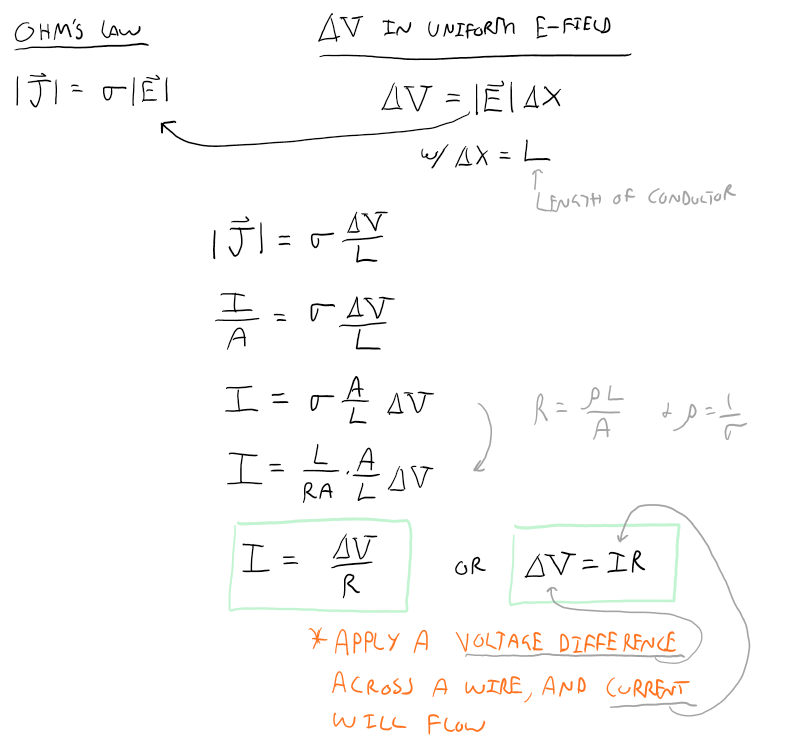 OHM'S LAW
ΔV IN UNIFORM E-FIELD
|J⃗| = σ|E⃗|
ΔV = |E⃗| ΔX
w/ ΔX = L
LENGTH OF CONDUCTOR
|J⃗| = σ ΔV/L
I/A = σ ΔV/L
I = σ A/L ΔV
R = ρL/A + ρ = 1/σ
I = L/RA · A/L ΔV
I = ΔV/R OR ΔV = IR
* APPLY A VOLTAGE DIFFERENCE
ACROSS A WIRE, AND CURRENT
WILL FLOW